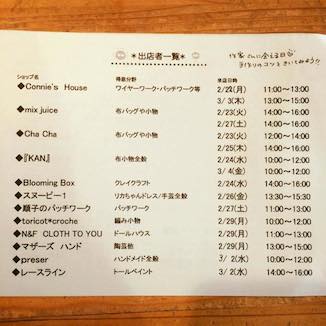 *出店者一覧*
作家さんに会える日♡
手作りのコツをきいてみよう!!
ショップ名 得意分野 来店日時
◆Connie's House ワイヤーワーク・パッチワーク等 2/22(月) 11:00~13:00
3/3(木) 13:00~15:00
◆mix juice 布バッグや小物 2/23(火) 12:00~14:00
2/27(土) 13:00~15:00
◆Cha Cha 布バッグや小物 2/23(火) 14:00~16:00
2/25(木) 13:00~15:00
◆『KAN』 布小物全般 2/24(水) 10:00~12:00
3/4(金) 10:00~12:00
◆Blooming Box クレイクラフト 2/24(水) 14:00~16:00
◆スヌーピー1 リカちゃんドレス/手芸全般 2/26(金) 13:00~15:00
◆順子のパッチワーク パッチワーク 2/27(土) 11:00~13:00
◆toricot*croche 編み小物 2/29(月) 10:00~12:00
◆N&F CLOTH TO YOU ドールハウス 2/29(月) 11:00~13:00
◆マザーズ ハンド 陶芸他 2/29(月) 13:00~15:00
◆preser ハンドメイド全般 3/2(水) 10:00~12:00
◆レースライン トールペイント 3/2(水) 14:00~16:00